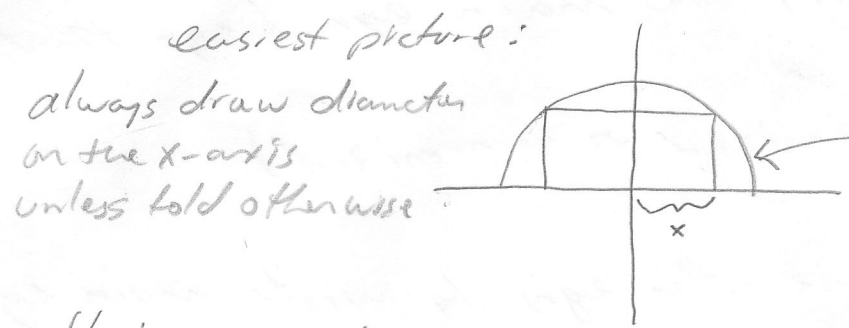 easiest picture:
always draw diameter
on the x-axis
unless told otherwise
x